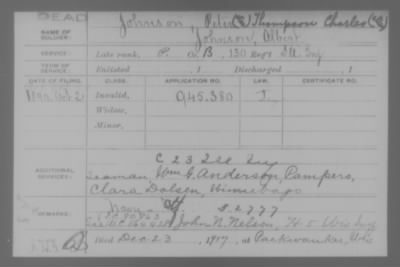 DEAD
NAME OF SOLDIER:
Johnson, Peter Thompson Charles
Johnson, Albert
SERVICE:
Late rank, P. Co. B, 130 Reg't Ill. Inf
TERM OF SERVICE:
Enlisted , 1 Discharged , 1
DATE OF FILING. CLASS. APPLICATION NO. LAW. CERTIFICATE NO.
Oct 2 Invalid, 945.380
Widow,
Minor,
ADDITIONAL SERVICES:
C 23 Ill Inf
Seaman, Wm G. Anderson, Pampero,
Clara Dolsen, Winnebago
REMARKS:
Navy S. 2777
John N. Nelson, H. 5 Wis Inf
Died Dec 23, 1917, at Packwaukee, Wis